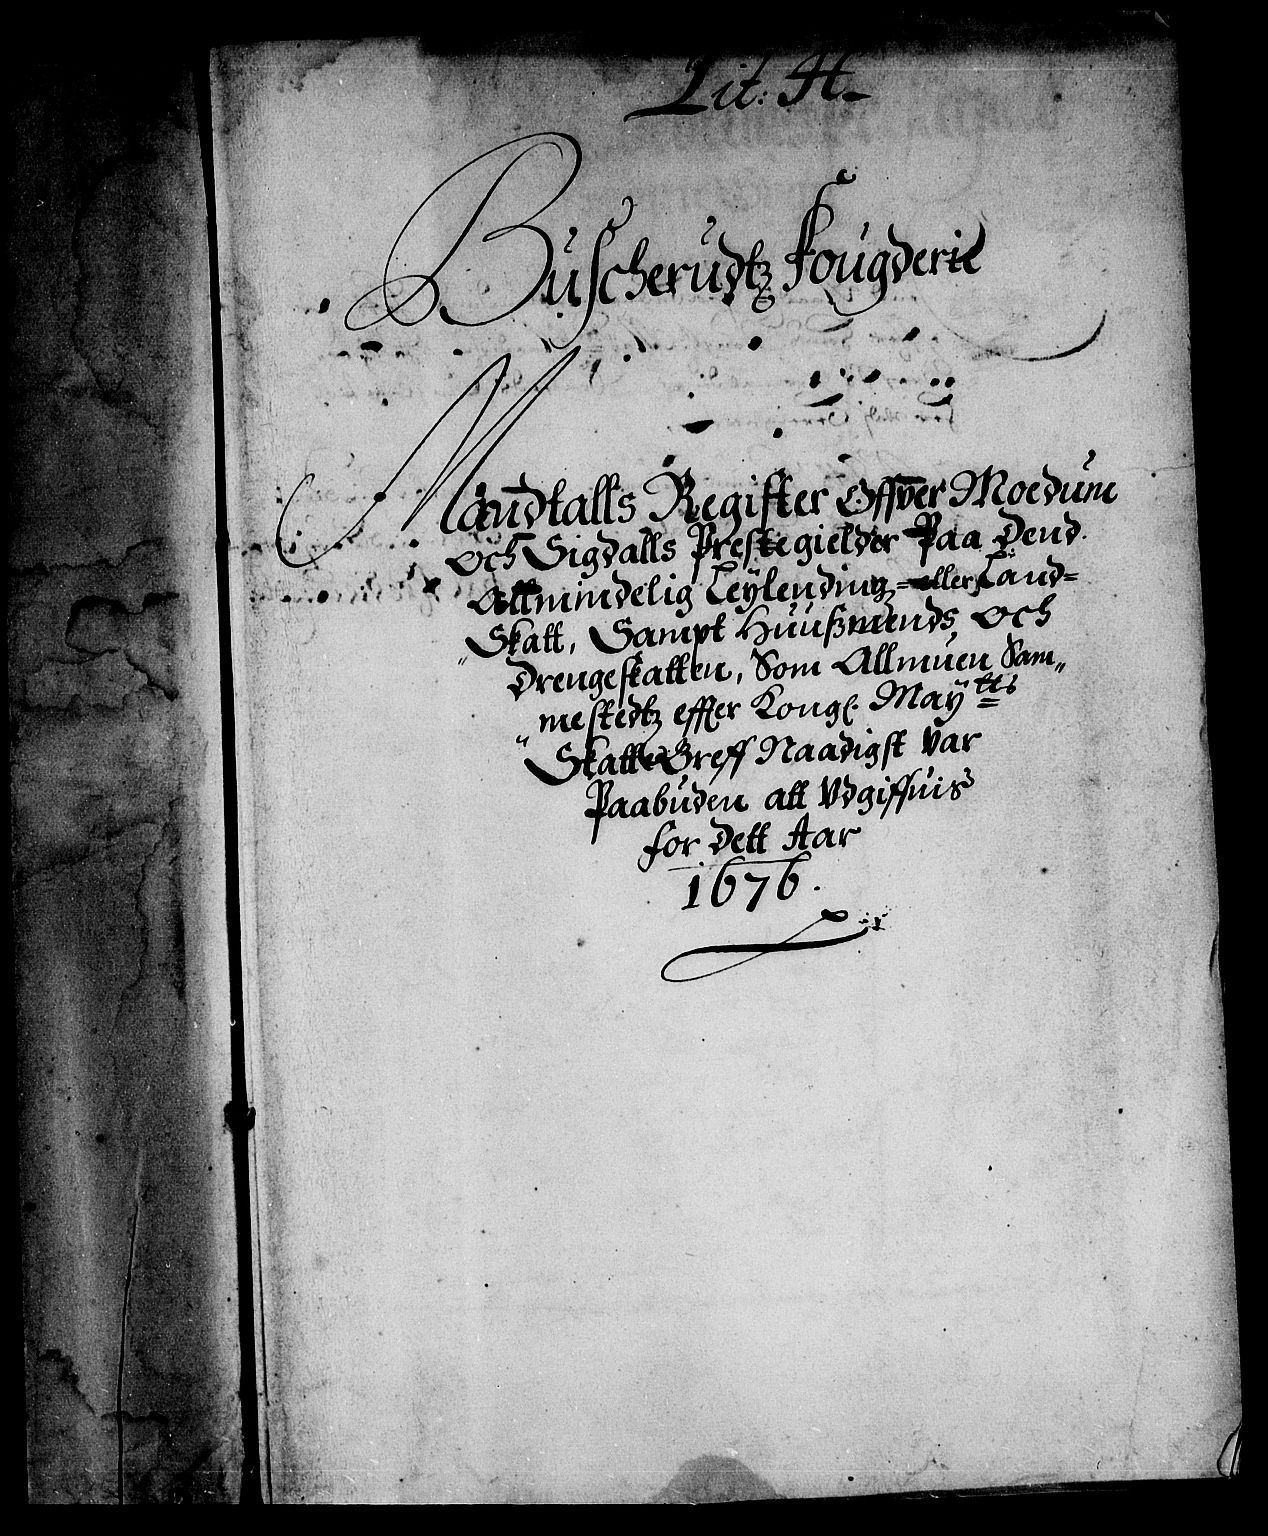 Lit: H.
Buscherudtz fougderie
Mandtalls Register offver Moedum
och Sigdalls Prestegielder Paa Dend
Allmindelig Leylendingz= eller Land=
Skatt, Sampt Huußmends och
Drengeskatten, Som Allmuen Sam„
„mestedtz effter Kongl. Maÿtts
SkatteBreff Naadigst Var
Paabuden att Udgiffuis
for Dett Aar
1676.